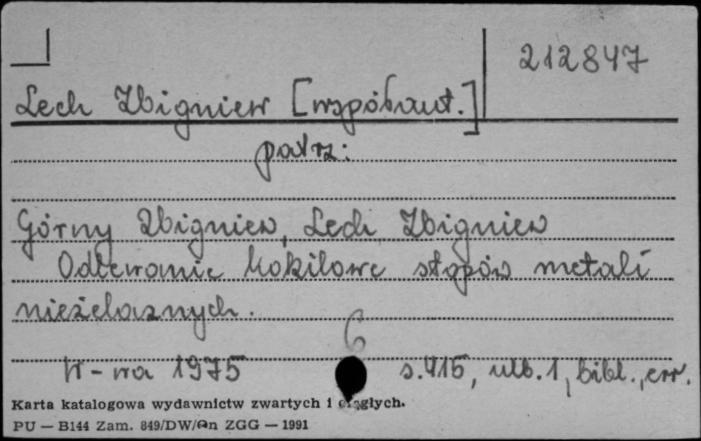 212847
Lech Zbigniew [współaut.]
patrz:
Górny Zbigniew, Lech Zbigniew
Odlewanie kokilowe stopów metali
nieżelaznych.
6
W-wa 1975 s. 415, ulb. 1, bibl., err.
Karta katalogowa wydawnictw zwartych i ciągłych.
PU — B144 Zam. 849/DW/Łn ZGG — 1991